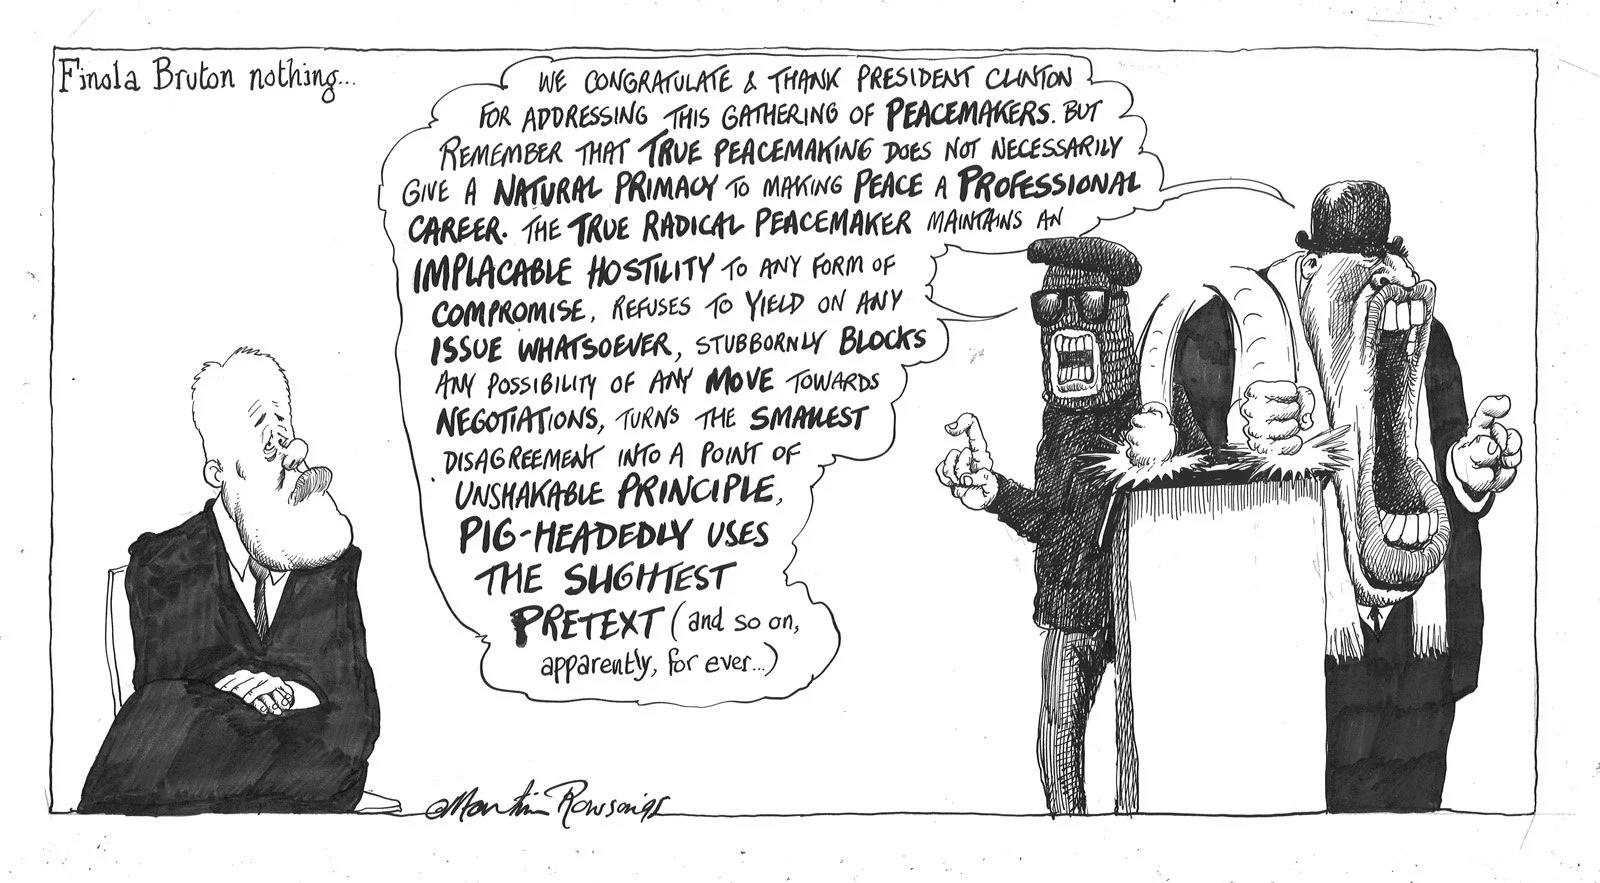 Finola Bruton nothing...
WE CONGRATULATE & THANK PRESIDENT CLINTON
FOR ADDRESSING THIS GATHERING OF PEACEMAKERS. BUT
REMEMBER THAT TRUE PEACEMAKING DOES NOT NECESSARILY
GIVE A NATURAL PRIMACY TO MAKING PEACE A PROFESSIONAL
CAREER. THE TRUE RADICAL PEACEMAKER MAINTAINS AN
IMPLACABLE HOSTILITY TO ANY FORM OF
COMPROMISE, REFUSES TO YIELD ON ANY
ISSUE WHATSOEVER, STUBBORNLY BLOCKS
ANY POSSIBILITY OF ANY MOVE TOWARDS
NEGOTIATIONS, TURNS THE SMALLEST
DISAGREEMENT INTO A POINT OF
UNSHAKABLE PRINCIPLE,
PIG-HEADEDLY USES
THE SLIGHTEST
PRETEXT (and so on,
apparently, for ever...)
©Martin Rowson 95